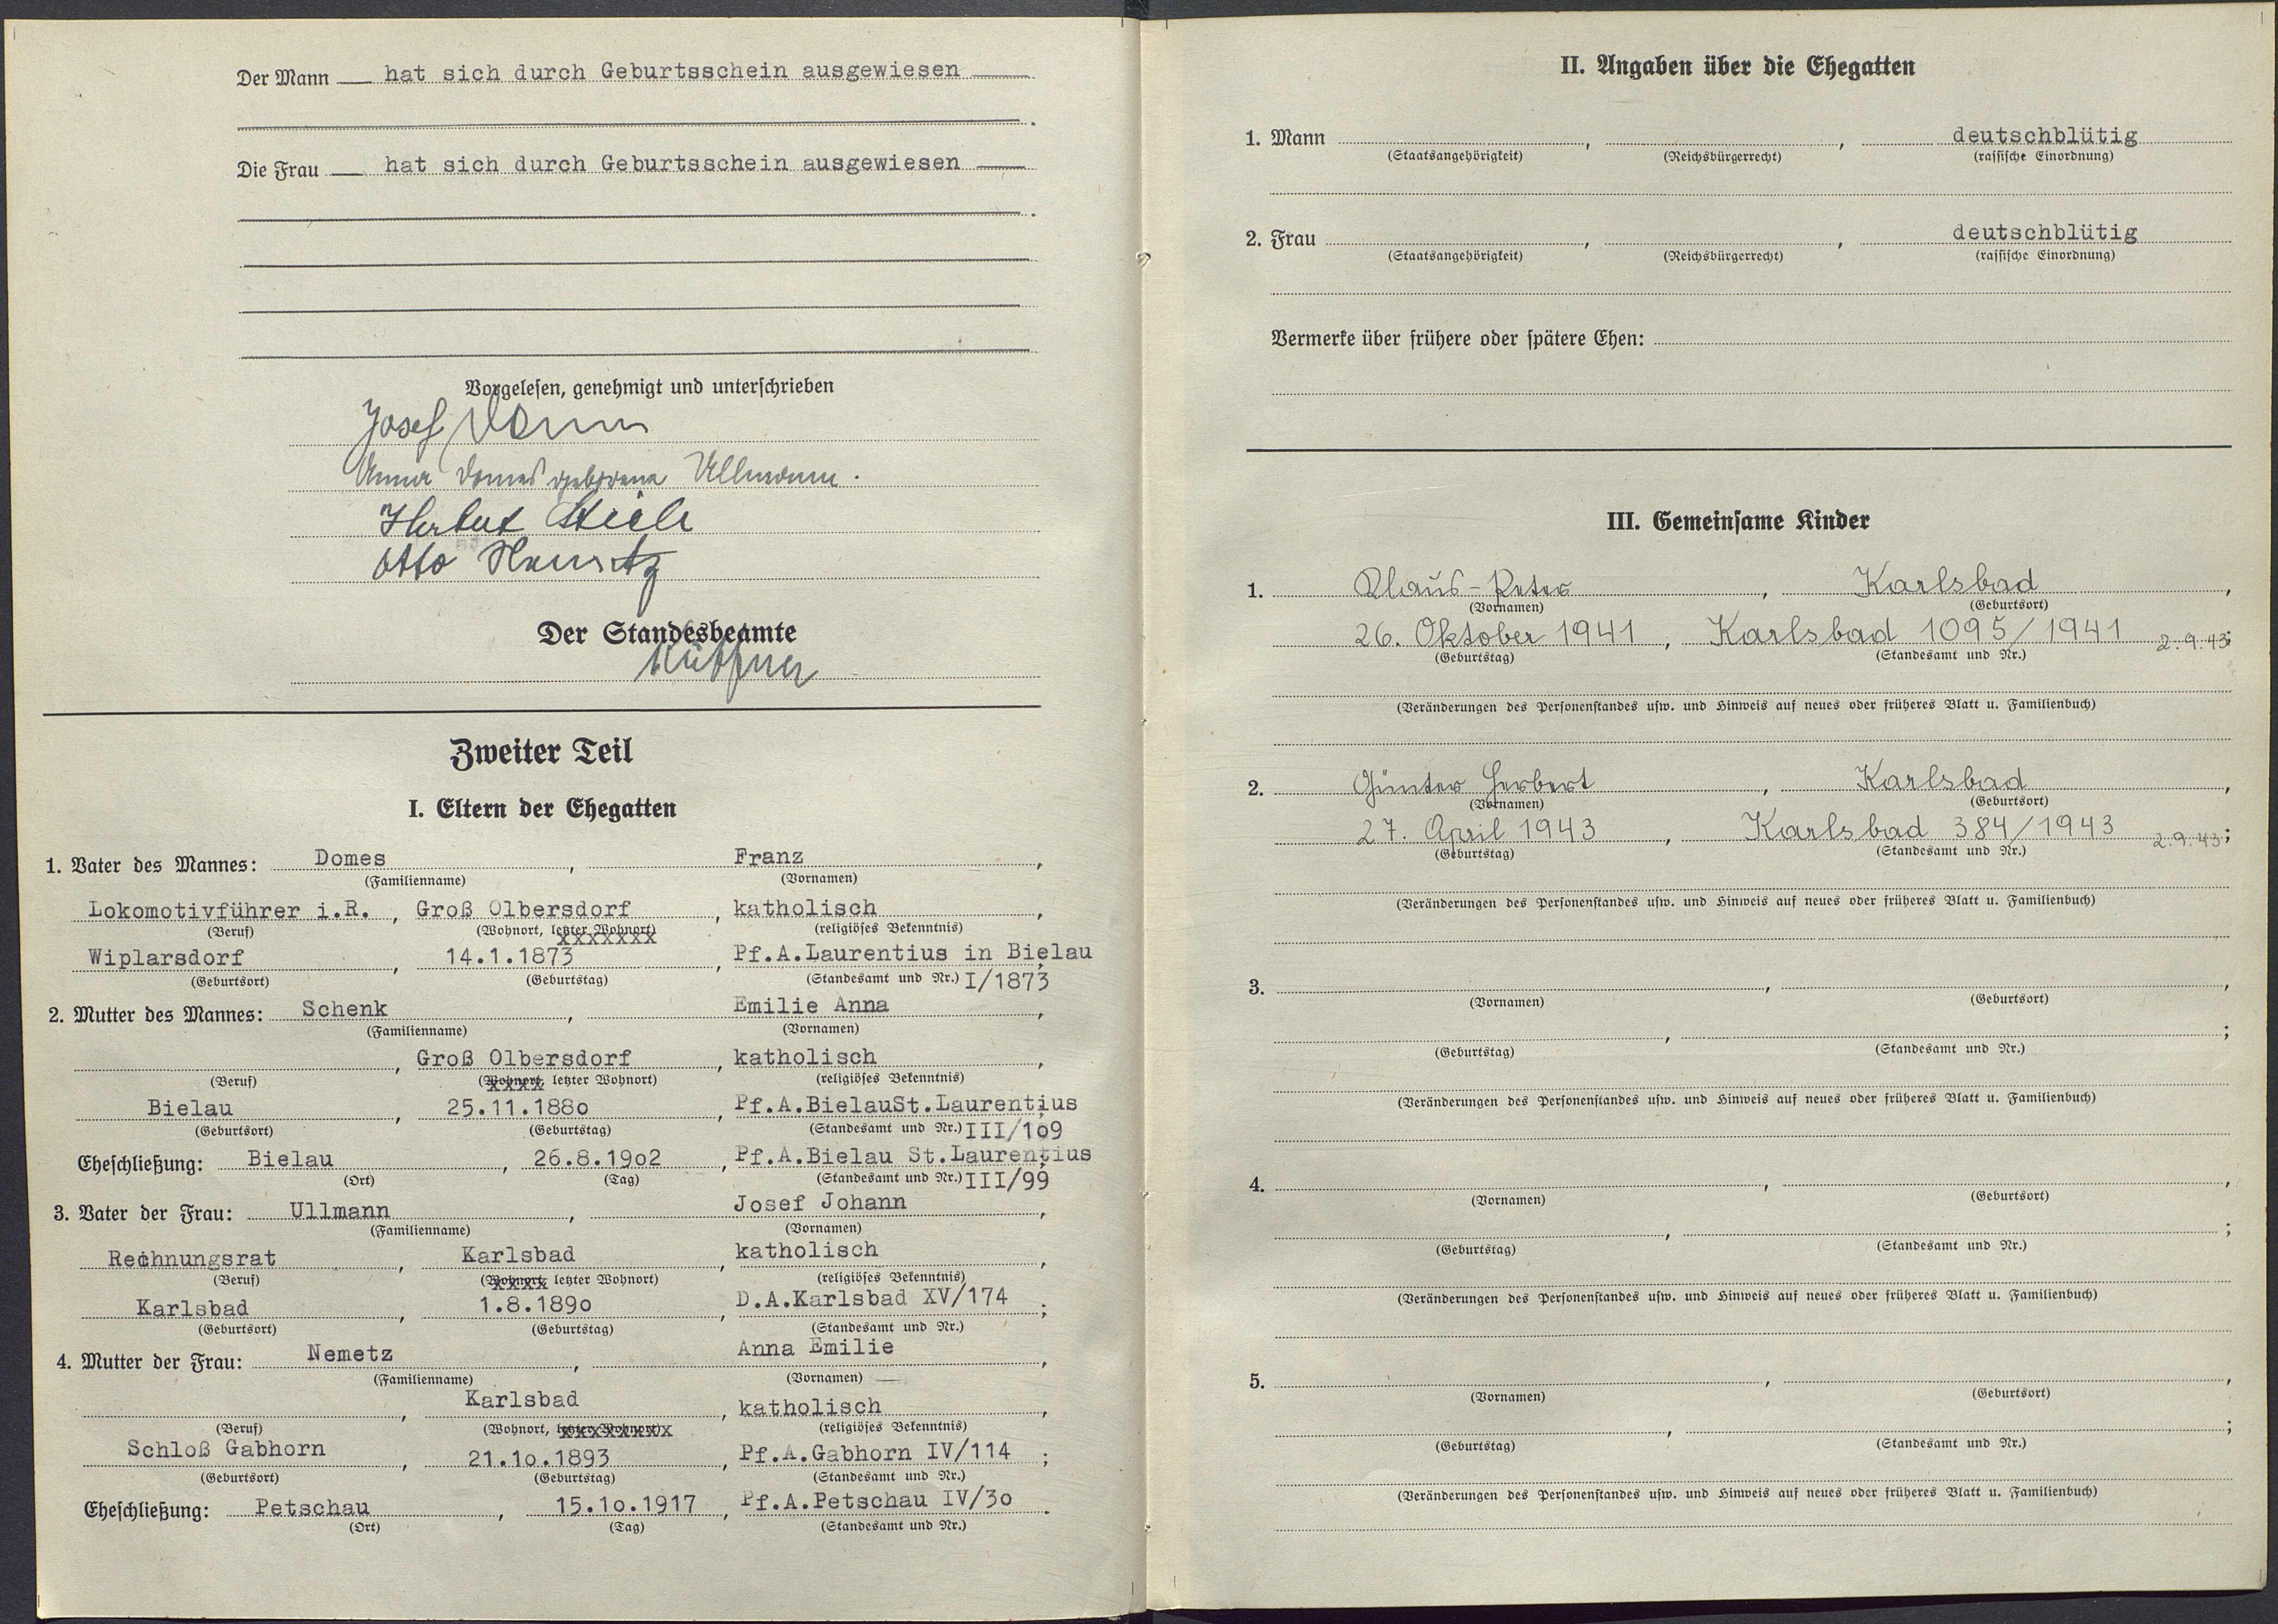 Der Mann hat sich durch Geburtsschein ausgewiesen
.
Die Frau hat sich durch Geburtsschein ausgewiesen
.
Vorgelesen, genehmigt und unterschrieben
Josef
Anna Domes geborene Ullmann.
Herbert
Otto
Der Standesbeamte
Zweiter Teil
I. Eltern der Ehegatten
1. Vater des Mannes: Domes, Franz,
(Familienname) (Vornamen)
Lokomotivführer i.R., Groß Olbersdorf, katholisch,
(Beruf) (Wohnort, letzter Wohnort) (religiöses Bekenntnis)
xxxxxxx
Wiplarsdorf, 14.1.1873, Pf.A.Laurentius in Bielau;
(Geburtsort) (Geburtstag) (Standesamt und Nr.) I/1873
2. Mutter des Mannes: Schenk, Emilie Anna,
(Familienname) (Vornamen)
, Groß Olbersdorf, katholisch,
(Beruf) (Wohnort, letzter Wohnort) (religiöses Bekenntnis)
Bielau, 25.11.188o, Pf.A.BielauSt.Laurentius;
(Geburtsort) (Geburtstag) (Standesamt und Nr.) III/1o9
Eheschließung: Bielau, 26.8.19o2, Pf.A.Bielau St.Laurentius;
(Ort) (Tag) (Standesamt und Nr.) III/99
3. Vater der Frau: Ullmann, Josef Johann,
(Familienname) (Vornamen)
Rechnungsrat, Karlsbad, katholisch,
(Beruf) (Wohnort, letzter Wohnort) (religiöses Bekenntnis)
Karlsbad, 1.8.189o, D.A.Karlsbad XV/174;
(Geburtsort) (Geburtstag) (Standesamt und Nr.)
4. Mutter der Frau: Nemetz, Anna Emilie,
(Familienname) (Vornamen)
, Karlsbad, katholisch,
(Beruf) (Wohnort, letzter Wohnort) (religiöses Bekenntnis)
Schloß Gabhorn, 21.1o.1893, Pf.A.Gabhorn IV/114;
(Geburtsort) (Geburtstag) (Standesamt und Nr.)
Eheschließung: Petschau, 15.1o.1917, Pf.A.Petschau IV/3o.
(Ort) (Tag) (Standesamt und Nr.)
II. Angaben über die Ehegatten
1. Mann , , deutschblütig
(Staatsangehörigkeit) (Reichsbürgerrecht) (rassische Einordnung)
2. Frau , , deutschblütig
(Staatsangehörigkeit) (Reichsbürgerrecht) (rassische Einordnung)
Vermerke über frühere oder spätere Ehen:
III. Gemeinsame Kinder
1. Klaus-Peter, Karlsbad,
(Vornamen) (Geburtsort)
26. Oktober 1941, Karlsbad 1095/1941 2.9.43;
(Geburtstag) (Standesamt und Nr.)
(Veränderungen des Personenstandes usw. und Hinweis auf neues oder früheres Blatt u. Familienbuch)
2. Günter Herbert, Karlsbad,
(Vornamen) (Geburtsort)
27. April 1943, Karlsbad 384/1943 2.9.43;
(Geburtstag) (Standesamt und Nr.)
(Veränderungen des Personenstandes usw. und Hinweis auf neues oder früheres Blatt u. Familienbuch)
3. , ,
(Vornamen) (Geburtsort)
, ;
(Geburtstag) (Standesamt und Nr.)
(Veränderungen des Personenstandes usw. und Hinweis auf neues oder früheres Blatt u. Familienbuch)
4. , ,
(Vornamen) (Geburtsort)
, ;
(Geburtstag) (Standesamt und Nr.)
(Veränderungen des Personenstandes usw. und Hinweis auf neues oder früheres Blatt u. Familienbuch)
5. , ,
(Vornamen) (Geburtsort)
, ;
(Geburtstag) (Standesamt und Nr.)
(Veränderungen des Personenstandes usw. und Hinweis auf neues oder früheres Blatt u. Familienbuch)